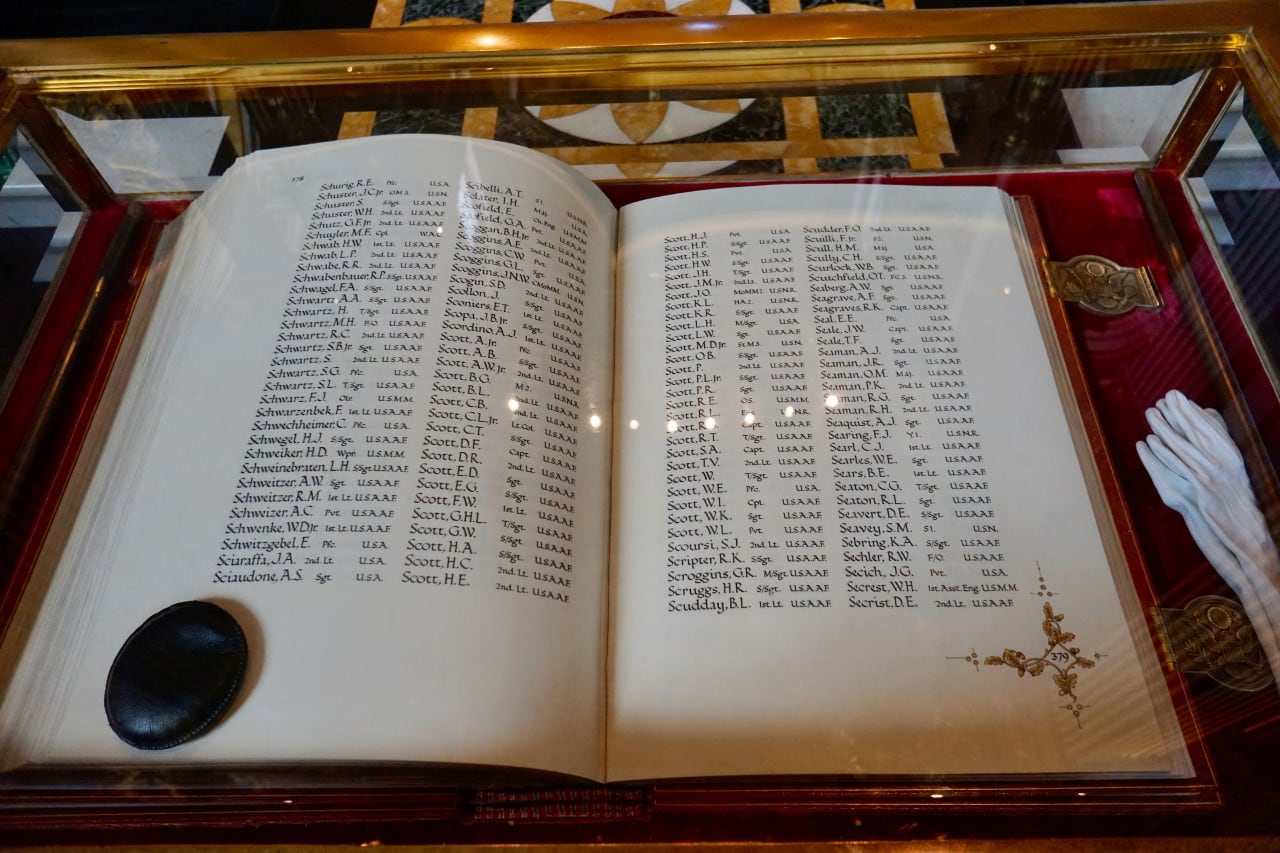 378
Schurig, R.E. Pfc. U.S.A.
Schuster, J.C.Jr. O.M.3. U.S.N.
Schuster, S. S/Sgt. U.S.A.A.F.
Schuster, W.H. 2nd. Lt. U.S.A.A.F.
Schutz, G.F.Jr. 2nd. Lt. U.S.A.A.F.
Schuyler, M.F. Cpl. W.A.C.
Schwab, H.W. 1st. Lt. U.S.A.A.F.
Schwab, L.P. 2nd. Lt. U.S.A.A.F.
Schwabe, R.R. 2nd. Lt. U.S.A.A.F.
Schwabenbauer, R.P. S/Sgt. U.S.A.A.F.
Schwagel, F.A. S/Sgt. U.S.A.A.F.
Schwartz, A.A. S/Sgt. U.S.A.A.F.
Schwartz, H. T/Sgt. U.S.A.A.F.
Schwartz, M.H. F/O. U.S.A.A.F.
Schwartz, R.C. 2nd. Lt. U.S.A.A.F.
Schwartz, S.B.Jr. Sgt. U.S.A.A.F.
Schwartz, S. 2nd. Lt. U.S.A.A.F.
Schwartz, S.G. Pfc. U.S.A.
Schwartz, S.L. T/Sgt. U.S.A.A.F.
Schwarz, F.J. Olr. U.S.M.M.
Schwarzenbek, F. 1st. Lt. U.S.A.A.F.
Schwechheimer, C. Pfc. U.S.A.
Schwegel, H.J. S/Sgt. U.S.A.A.F.
Schweiker, H.D. Wpr. U.S.M.M.
Schweinebraten, L.H. S/Sgt. U.S.A.A.F.
Schweitzer, A.W. Sgt. U.S.A.A.F.
Schweitzer, R.M. 1st. Lt. U.S.A.A.F.
Schweizer, A.C. Pvt. U.S.A.A.F.
Schwenke, W.D.Jr. 1st. Lt. U.S.A.A.F.
Schwitzgebel, E. Pfc. U.S.A.
Sciaraffa, J.A. 2nd. Lt. U.S.A.
Sciaudone, A.S. Sgt. U.S.A.
Scibelli, A.T. S1. U.S.N.R.
Sclater, J.H. Maj.
Scofield, E. Ch.Eng. U.S.M.M.
Scofield, G.A. Pvt.
Scoggan, B.H.Jr. 2nd. Lt.
Scoggins, A.E. 2nd. Lt.
Scoggins, C.W. Pvt.
Scoggins, G.L. Sgt.
Scoggins, J.N.W. CMoMM. U.S.N.
Scogin, S.D. 2nd. Lt.
Scollon, J.
Sconiers, E.T.
Scopa, J.B.Jr.
Scordino, A.J.
Scott, A.Jr.
Scott, A.B.
Scott, A.W.Jr.
Scott, B.G.
Scott, B.L.
Scott, C.B.
Scott, C.L.Jr.
Scott, C.T.
Scott, D.F.
Scott, D.R.
Scott, E.D.
Scott, E.G.
Scott, F.W.
Scott, G.H.L.
Scott, G.W.
Scott, H.A. S/Sgt. U.S.A.A.F.
Scott, H.C. 2nd. Lt. U.S.A.A.F.
Scott, H.E. 2nd. Lt. U.S.A.A.F.
Scott, H.J. Pvt. U.S.A.
Scott, H.P. S/Sgt. U.S.A.A.F.
Scott, H.S. Pvt. U.S.A.
Scott, H.W. S/Sgt. U.S.A.A.F.
Scott, J.H. T/Sgt. U.S.A.A.F.
Scott, J.M.Jr. 2nd. Lt. U.S.A.A.F.
Scott, J.O. MoMM2. U.S.N.R.
Scott, K.L. HA2. U.S.N.R.
Scott, K.R. S/Sgt. U.S.A.A.F.
Scott, L.H. M/Sgt. U.S.A.
Scott, L.W. Sgt. U.S.A.A.F.
Scott, M.D.Jr. St M3. U.S.N.
Scott, O.B. S/Sgt. U.S.A.A.F.
Scott, P. 2nd. Lt. U.S.A.A.F.
Scott, P.L.Jr. S/Sgt. U.S.A.A.F.
Scott, P.R. Sgt. U.S.A.A.F.
Scott, R.E. OS. U.S.M.M.
Scott, R.L.
Scott, Capt. U.S.A.A.F.
Scott, R.T. T/Sgt. U.S.A.A.F.
Scott, S.A. Capt. U.S.A.A.F.
Scott, T.V. 2nd. Lt. U.S.A.A.F.
Scott, W. T/Sgt. U.S.A.A.F.
Scott, W.E. Pfc. U.S.A.
Scott, W.I. Cpl. U.S.A.A.F.
Scott, W.K. Sgt. U.S.A.A.F.
Scott, W.L. Pvt. U.S.A.A.F.
Scoursi, S.J. 2nd. Lt. U.S.A.A.F.
Scripter, R.K. S/Sgt. U.S.A.A.F.
Scroggins, G.R. M/Sgt. U.S.A.A.F.
Scruggs, H.R. S/Sgt. U.S.A.A.F.
Scudday, B.L. 1st. Lt. U.S.A.A.F.
Scudder, F.O. 2nd. Lt. U.S.A.A.F.
Scuilli, F.Jr. S2. U.S.N.
Scull, H.M. Maj. U.S.A.
Scully, C.H. S/Sgt. U.S.A.A.F.
Scurlock, W.B. Sgt. U.S.A.A.F.
Scutchfield, O.T. FC3. U.S.N.
Seaberg, A.W. Sgt. U.S.A.A.F.
Seagrave, A.F. Sgt. U.S.A.A.F.
Seagraves, R.K. Capt. U.S.A.A.F.
Seal, E.E. Pfc. U.S.A.
Seale, J.W. Capt. U.S.A.A.F.
Seale, T.F. Sgt. U.S.A.A.F.
Seaman, A.J. 2nd. Lt. U.S.A.A.F.
Seaman, J.R. Sgt. U.S.A.A.F.
Seaman, O.M. Maj. U.S.A.A.F.
Seaman, P.K. 2nd. Lt. U.S.A.A.F.
Seaman, R.G. Sgt. U.S.A.A.F.
Seaman, R.H. 2nd. Lt. U.S.A.A.F.
Seaquist, A.J. Sgt. U.S.A.A.F.
Searing, F.J. Y1. U.S.N.R.
Searl, C.J. 1st. Lt. U.S.A.A.F.
Searles, W.E. Sgt. U.S.A.A.F.
Sears, B.E. 1st. Lt. U.S.A.A.F.
Seaton, C.G. T/Sgt. U.S.A.A.F.
Seaton, R.L. Sgt. U.S.A.A.F.
Seavert, D.E. S/Sgt. U.S.A.A.F.
Seavey, S.M. S1. U.S.N.
Sebring, K.A. S/Sgt. U.S.A.A.F.
Sechler, R.W. F/O. U.S.A.A.F.
Secich, J.G. Pvt. U.S.A.
Secrest, W.H. 1st. Asst. Eng. U.S.M.M.
Secrist, D.E. 2nd. Lt. U.S.A.A.F.
379